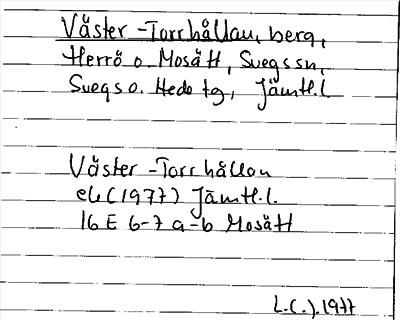 Väster-Torrhållan, berg,
Herrö o. Mosätt, Svegs sn,
Svegs o. Hede tg, Jämtl. l.
Väster-Torrhållan
ek (1977) Jämtl. l.
16 E 6-7 a-b Mosätt
1977